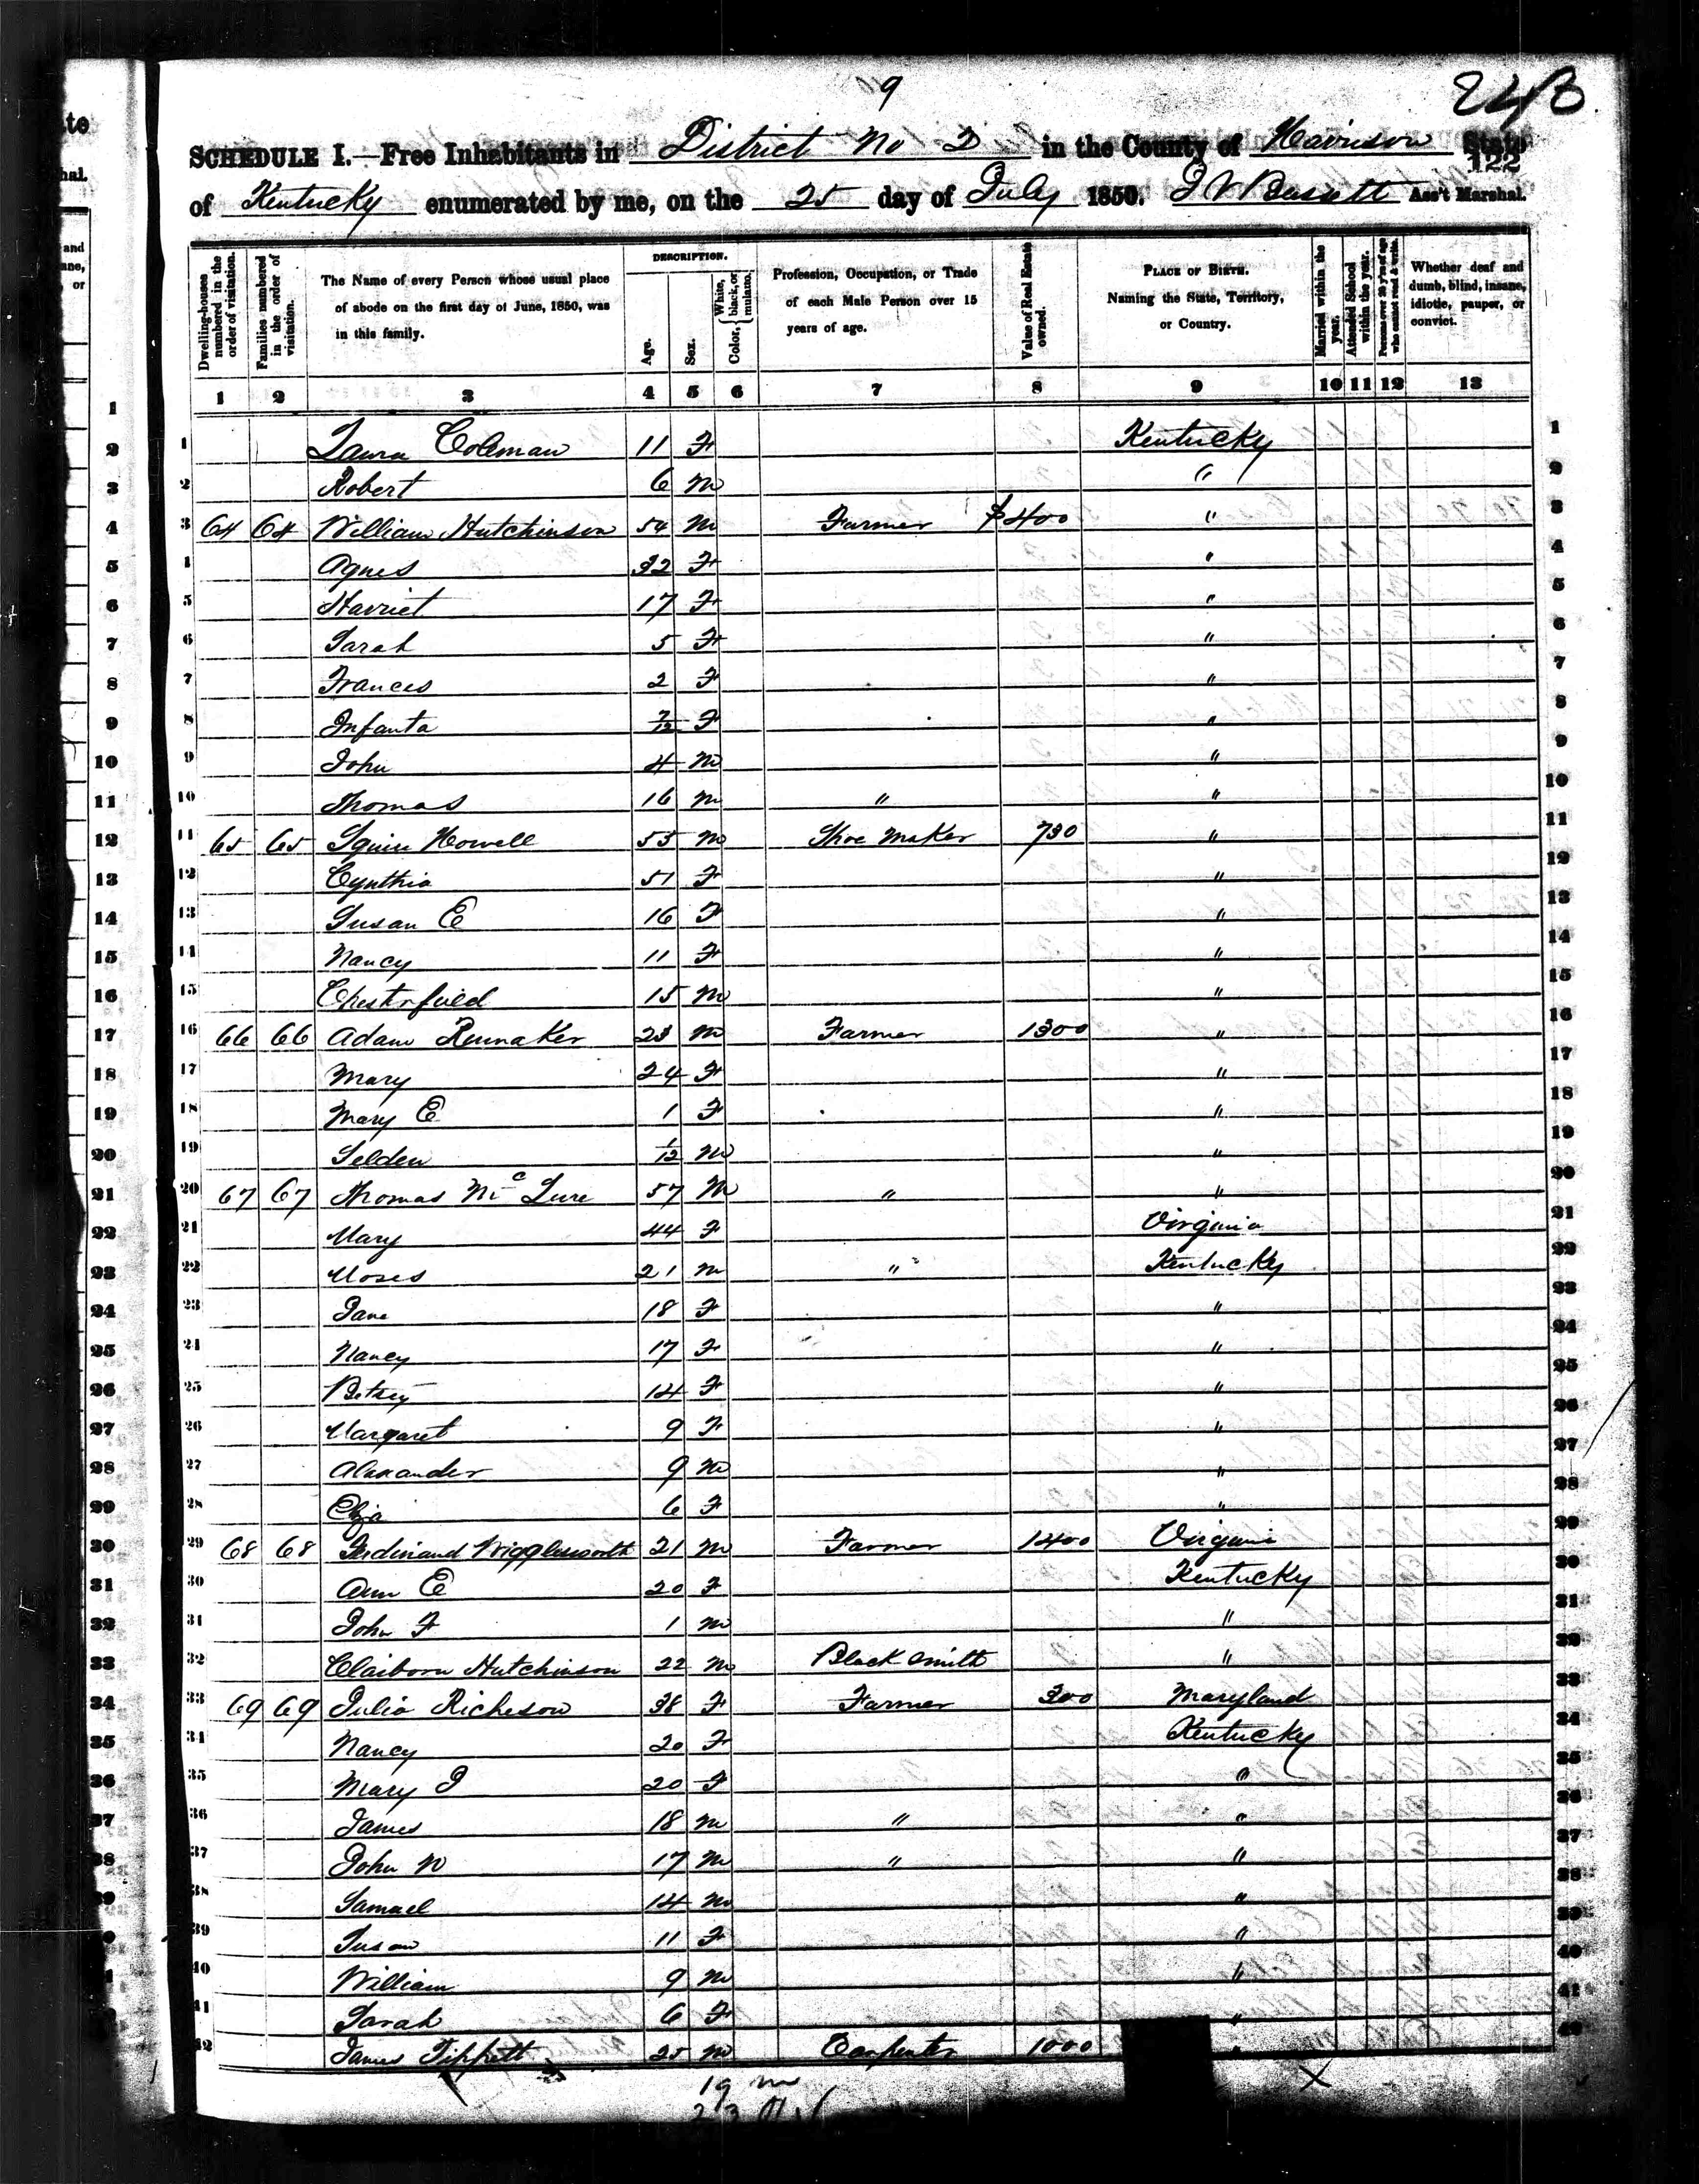 9
24B
SCHEDULE I.—Free Inhabitants in District No 2 in the County of Harrison State
122
of Kentucky enumerated by me, on the 25 day of July 1850. Bassett Ass't Marshal.
Dwelling-houses numbered in the order of visitation.
Families numbered in the order of visitation.
The Name of every Person whose usual place of abode on the first day of June, 1850, was in this family.
DESCRIPTION.
Age.
Sex.
Color, White, black, or mulatto.
Profession, Occupation, or Trade of each Male Person over 15 years of age.
Value of Real Estate owned.
PLACE OF BIRTH. Naming the State, Territory, or Country.
Married within the year.
Attended School within the year.
Persons over 20 y'rs of age who cannot read & write.
Whether deaf and dumb, blind, insane, idiotic, pauper, or convict.
1 2 3 4 5 6 7 8 9 10 11 12 13
1 Laura Coleman 11 F Kentucky 1
2 Robert 6 M " 2
3 64 64 William Hutchinson 54 M Farmer $400 " 3
4 Agnes 32 F " 4
5 Harriet 17 F " 5
6 Sarah 5 F " 6
7 Frances 2 F " 7
8 Infanta 7/12 F " 8
9 John 4 M " 9
10 Thomas 16 M " " 10
11 65 65 Squire Howell 53 M Shoe Maker 730 " 11
12 Cynthia 51 F " 12
13 Susan E 16 F " 13
14 Nancy 11 F " 14
15 Chesterfield 15 M " 15
16 66 66 Adam Renaker 23 M Farmer 1300 " 16
17 Mary 24 F " 17
18 Mary E 1 F " 18
19 Selden 1/12 M " 19
20 67 67 Thomas McLure 57 M " " 20
21 Mary 44 F Virginia 21
22 Moses 21 M " Kentucky 22
23 Jane 18 F " 23
24 Nancy 17 F " 24
25 Betsey 14 F " 25
26 Margaret 9 F " 26
27 Alexander 9 M " 27
28 Eliza 6 F " 28
29 68 68 Ferdinand Wigglesworth 21 M Farmer 1400 Virginia 29
30 Ann E 20 F Kentucky 30
31 John F 1 M " 31
32 Claiborn Hutchinson 22 M Black Smith " 32
33 69 69 Julia Richeson 38 F Farmer 300 Maryland 33
34 Nancy 20 F Kentucky 34
35 Mary J 20 F " 35
36 James 18 M " " 36
37 John W 17 M " " 37
38 Samuel 14 M " 38
39 Susan 11 F " 39
40 William 9 M " 40
41 Sarah 6 F " 41
42 James Tippett 25 M Carpenter 1000 " 42
19 m
23